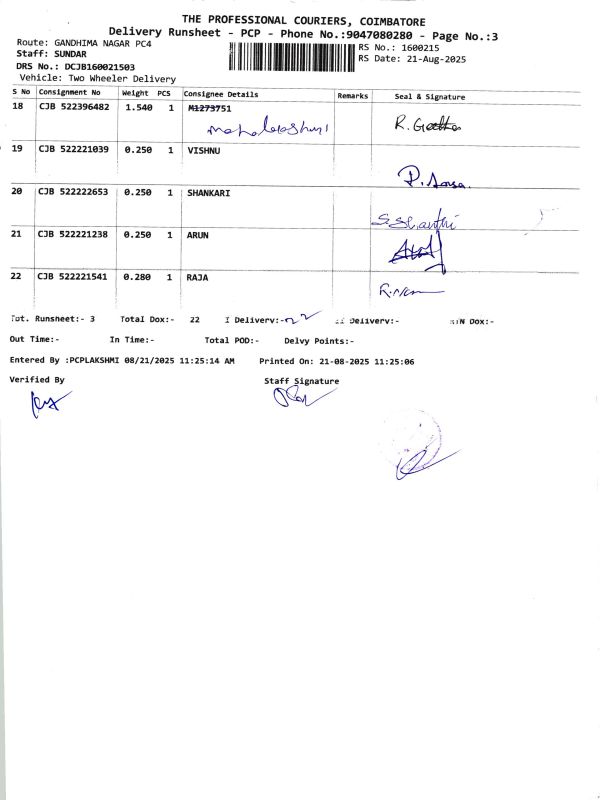 THE PROFESSIONAL COURIERS, COIMBATORE
Delivery Runsheet - PCP - Phone No.:9047080280 - Page No.:3
Route: GANDHIMA NAGAR PC4
RS No.: 1600215
Staff: SUNDAR
RS Date: 21-Aug-2025
DRS No.: DCJB160021503
Vehicle: Two Wheeler Delivery
S No Consignment No Weight PCS Consignee Details Remarks Seal & Signature
18 CJB 522396482 1.540 1 M1273751
Mahalakshmi R. Geetha
19 CJB 522221039 0.250 1 VISHNU
20 CJB 522222653 0.250 1 SHANKARI
21 CJB 522221238 0.250 1 ARUN
22 CJB 522221541 0.280 1 RAJA
Tot. Runsheet:- 3 Total Dox:- 22 I Delivery:- 22 II Delivery:- Dox:-
Out Time:- In Time:- Total POD:- Delvy Points:-
Entered By :PCPLAKSHMI 08/21/2025 11:25:14 AM Printed On: 21-08-2025 11:25:06
Verified By Staff Signature